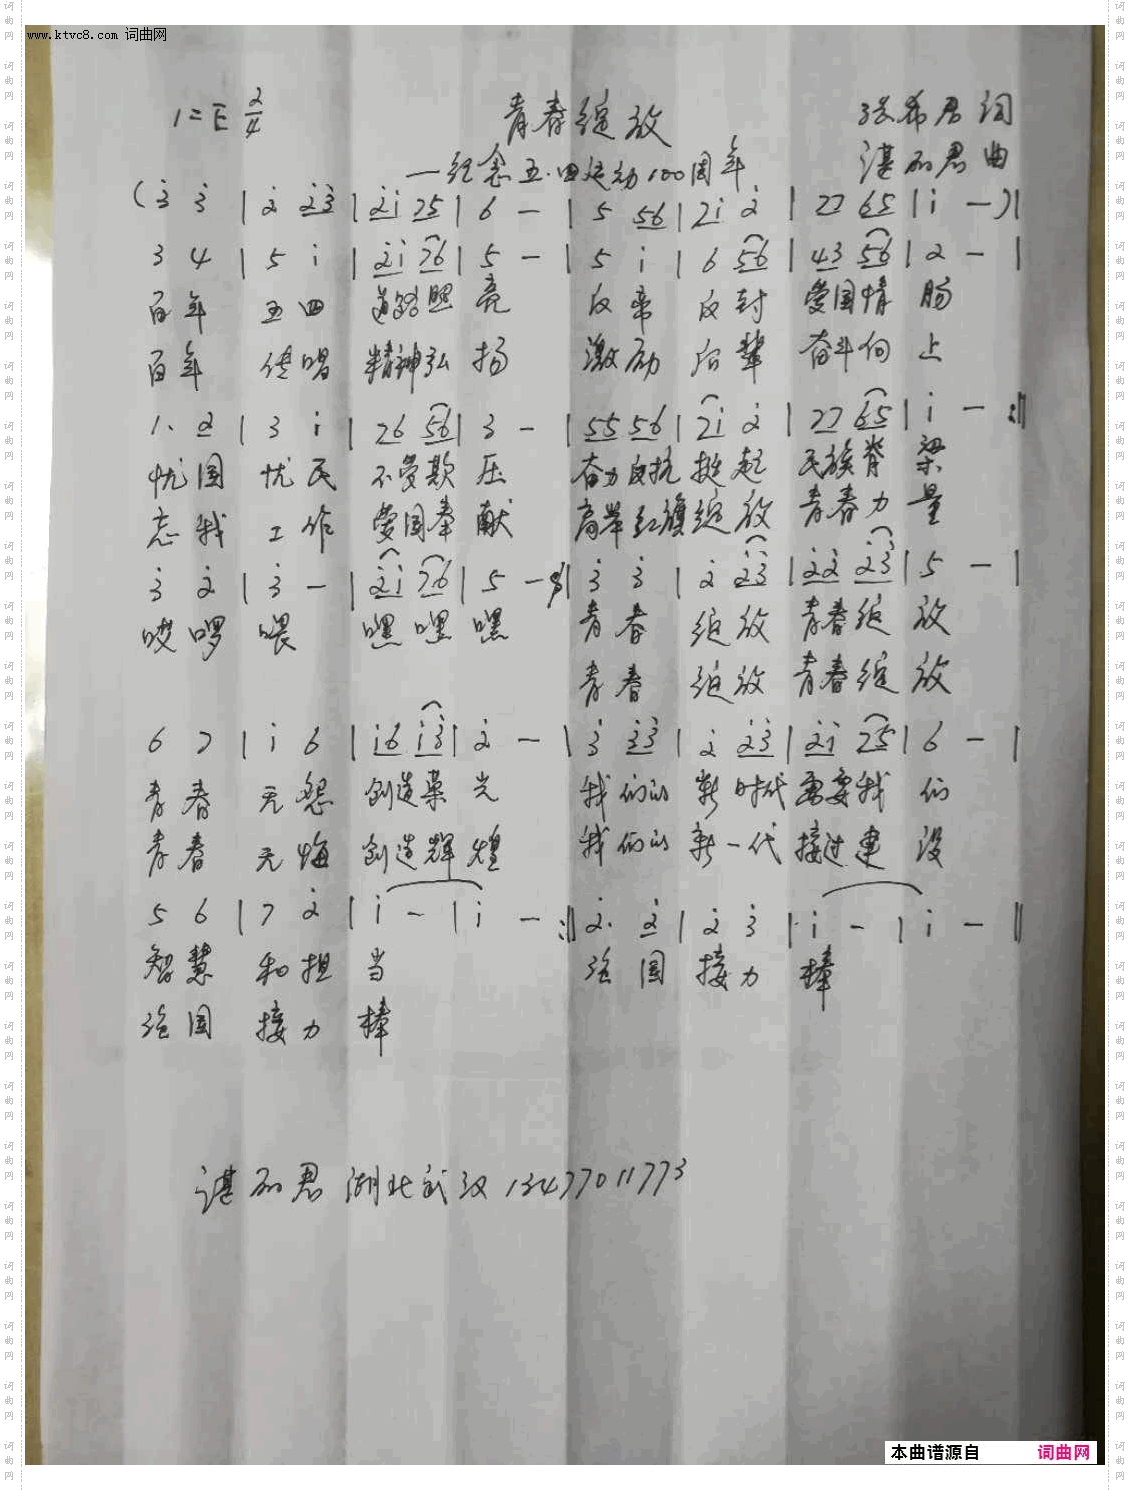 www.ktvc8.com 词曲网
1=E 2/4 青春绽放 张希君词
——纪念五·四运动100周年 谌丽君曲
(3̇ 3̇ | 2̇ 2̇3̇ | 2̇1̇ 25 | 6 - | 5 56 | 21̇ 2̇ | 77 65 | 1̇ -)|
3 4 | 5 1̇ | 2̇1̇ 76 | 5 - | 5 1̇ | 6 56 | 43 56 | 2 - |
百年 五四 道路照亮 反帝 反封 爱国情肠
百年 传唱 精神弘扬 激励 后辈 奋斗向上
1. 2 | 3 1̇ | 76 56 | 3 - | 55 56 | 21̇ 2̇ | 77 65 | 1̇ - :||
忧国 忧民 不受欺压 奋力反抗 挺起 民族脊梁
忘我 工作 爱国奉献 高举红旗 绽放 青春力量
3̇ 2̇ | 3̇ - | 2̇1̇ 76 | 5 - | 3̇ 3̇ | 2̇ 2̇3̇ | 2̇2̇ 2̇3̇ | 5 - |
哎啰 喂 嘿嘿嘿 青春 绽放 青春绽放
青春 绽放 青春绽放
6 7 | 1̇ 6 | 1̇6 1̇3̇ | 2̇ - | 3̇ 3̇3̇ | 2̇ 2̇3̇ | 2̇1̇ 75 | 6 - |
青春 无怨 创造荣光 我们的 新时代 需要我们
青春 无悔 创造辉煌 我们的 新一代 接过建设
5 6 | 7 2̇ | 1̇ - | 1̇ - :|| 2̇. 2̇ | 2̇ 3̇ | 1̇ - | 1̇ - ||
智慧 和担当 强国 接力棒
强国 接力棒
谌丽君 湖北武汉 13477011773
本曲谱源自 词曲网